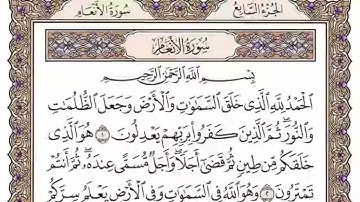 الجزء السابع سورة الأنعام
سورة الأنعام
بسم الله الرحمن الرحيم
الحمد لله الذي خلق السموات والأرض وجعل الظلمات
والنور ثم الذين كفروا بربهم يعدلون ١ هو الذي
خلقكم من طين ثم قضى أجلا وأجل مسمى عنده ثم أنتم
تمترون ٢ وهو الله في السموات وفي الأرض يعلم سركم